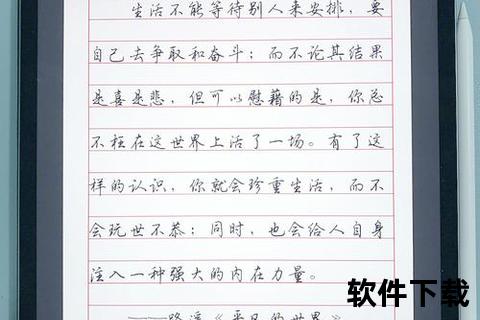 生活不能等待别人来安排，要
自己去争取和奋斗；而不论其结果
是喜是悲，但可以慰藉的是，你总
不枉在这世界上活了一场。有了这
样的认识，你就会珍重生活，而不
会玩世不恭；同时，也会给人自身
注入一种强大的内在力量。
——路遥《平凡的世界》
软件下载